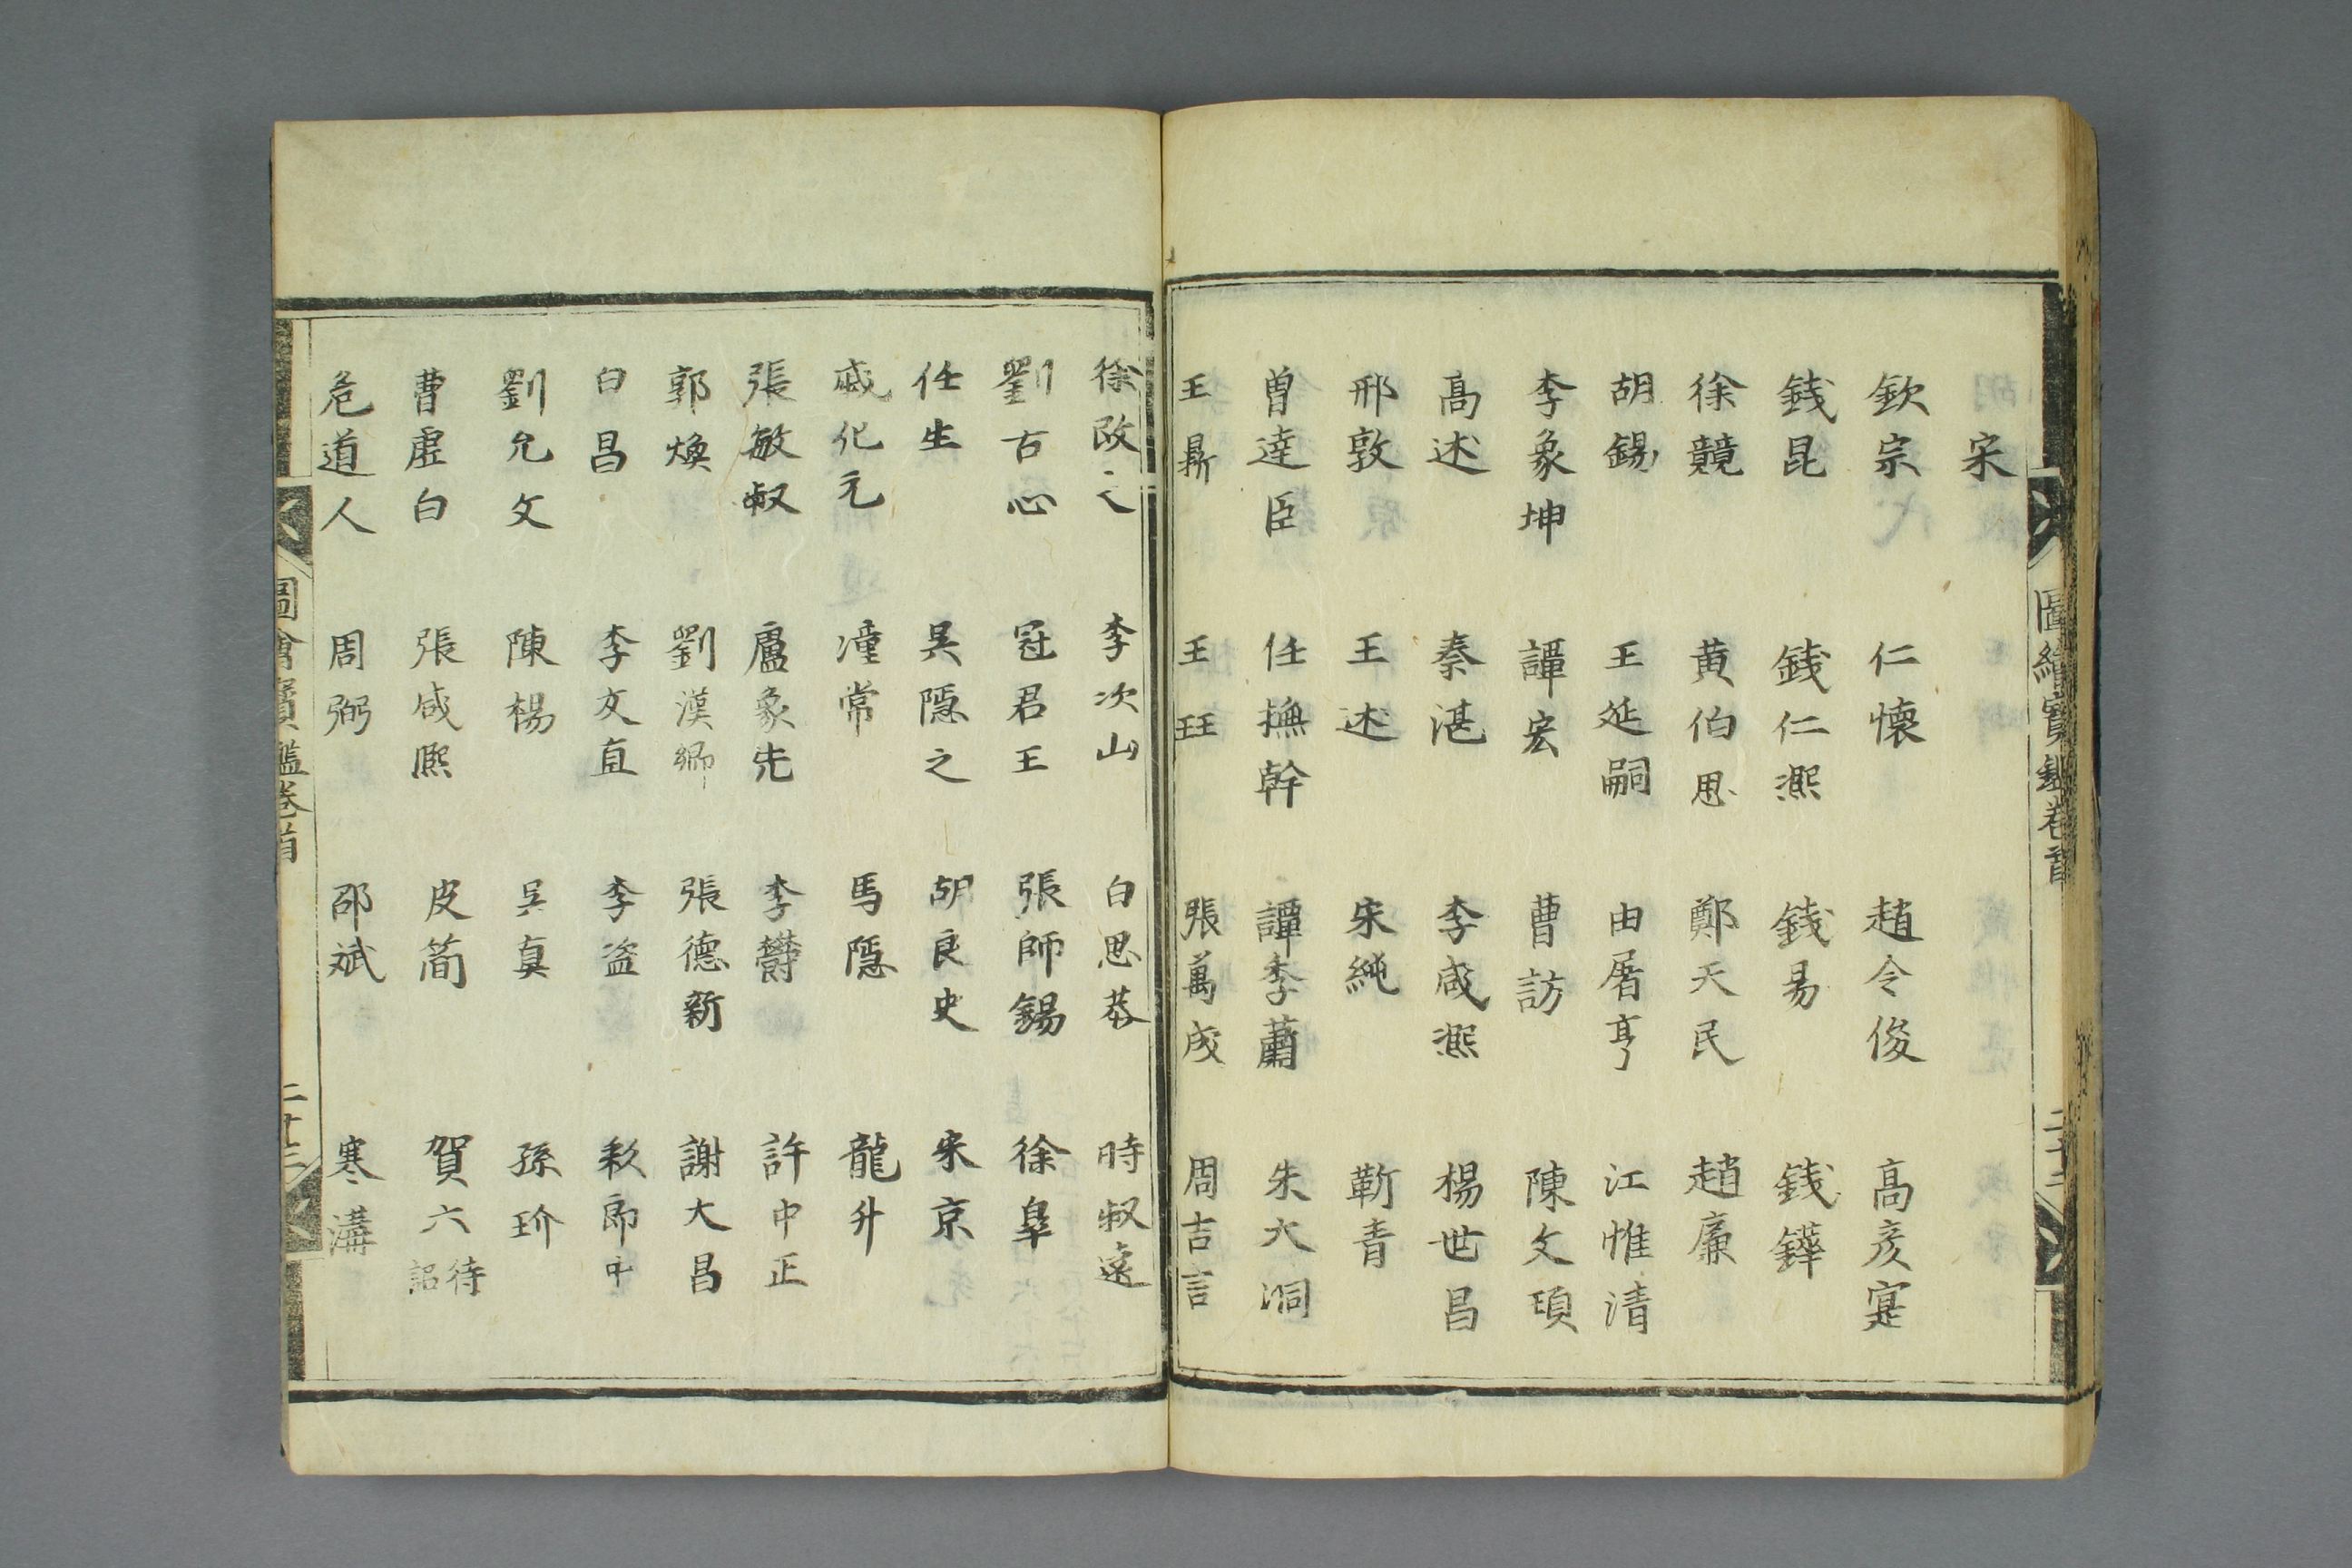 宋
欽宗 仁懷 趙令俊 高彥寔
錢昆 錢仁熈 錢易 錢鏵
徐競 黄伯思 鄭天民 趙廉
胡錫 王延嗣 由屠亨 江惟清
李象坤 譚宏 曹訪 陳文頊
高述 秦湛 李咸熈 楊世昌
邢敦 王述 宋純 靳青
曾逹臣 任撫幹 譚季蕭 朱大洞
王鼎 王珏 張萬成 周吉言
圖繪寳鑑卷首
二十三
徐改之 李次山 白思恭 時叔遠
劉古心 冦君王 張師錫 徐皐
任生 吳隱之 胡良史 宋京
戚化元 潼常 馬隱 龍升
張敏叔 盧象先 李欝 許中正
郭煥 劉漢卿 張德新 謝大昌
白昌 李文直 李盗 敉郎中
劉允文 陳楊 吳真 孫玠
曹虛白 張咸熈 皮簡 賀六待詔
危道人 周弼 邵斌 寒溝
圖繪寳鑑卷首
二十三